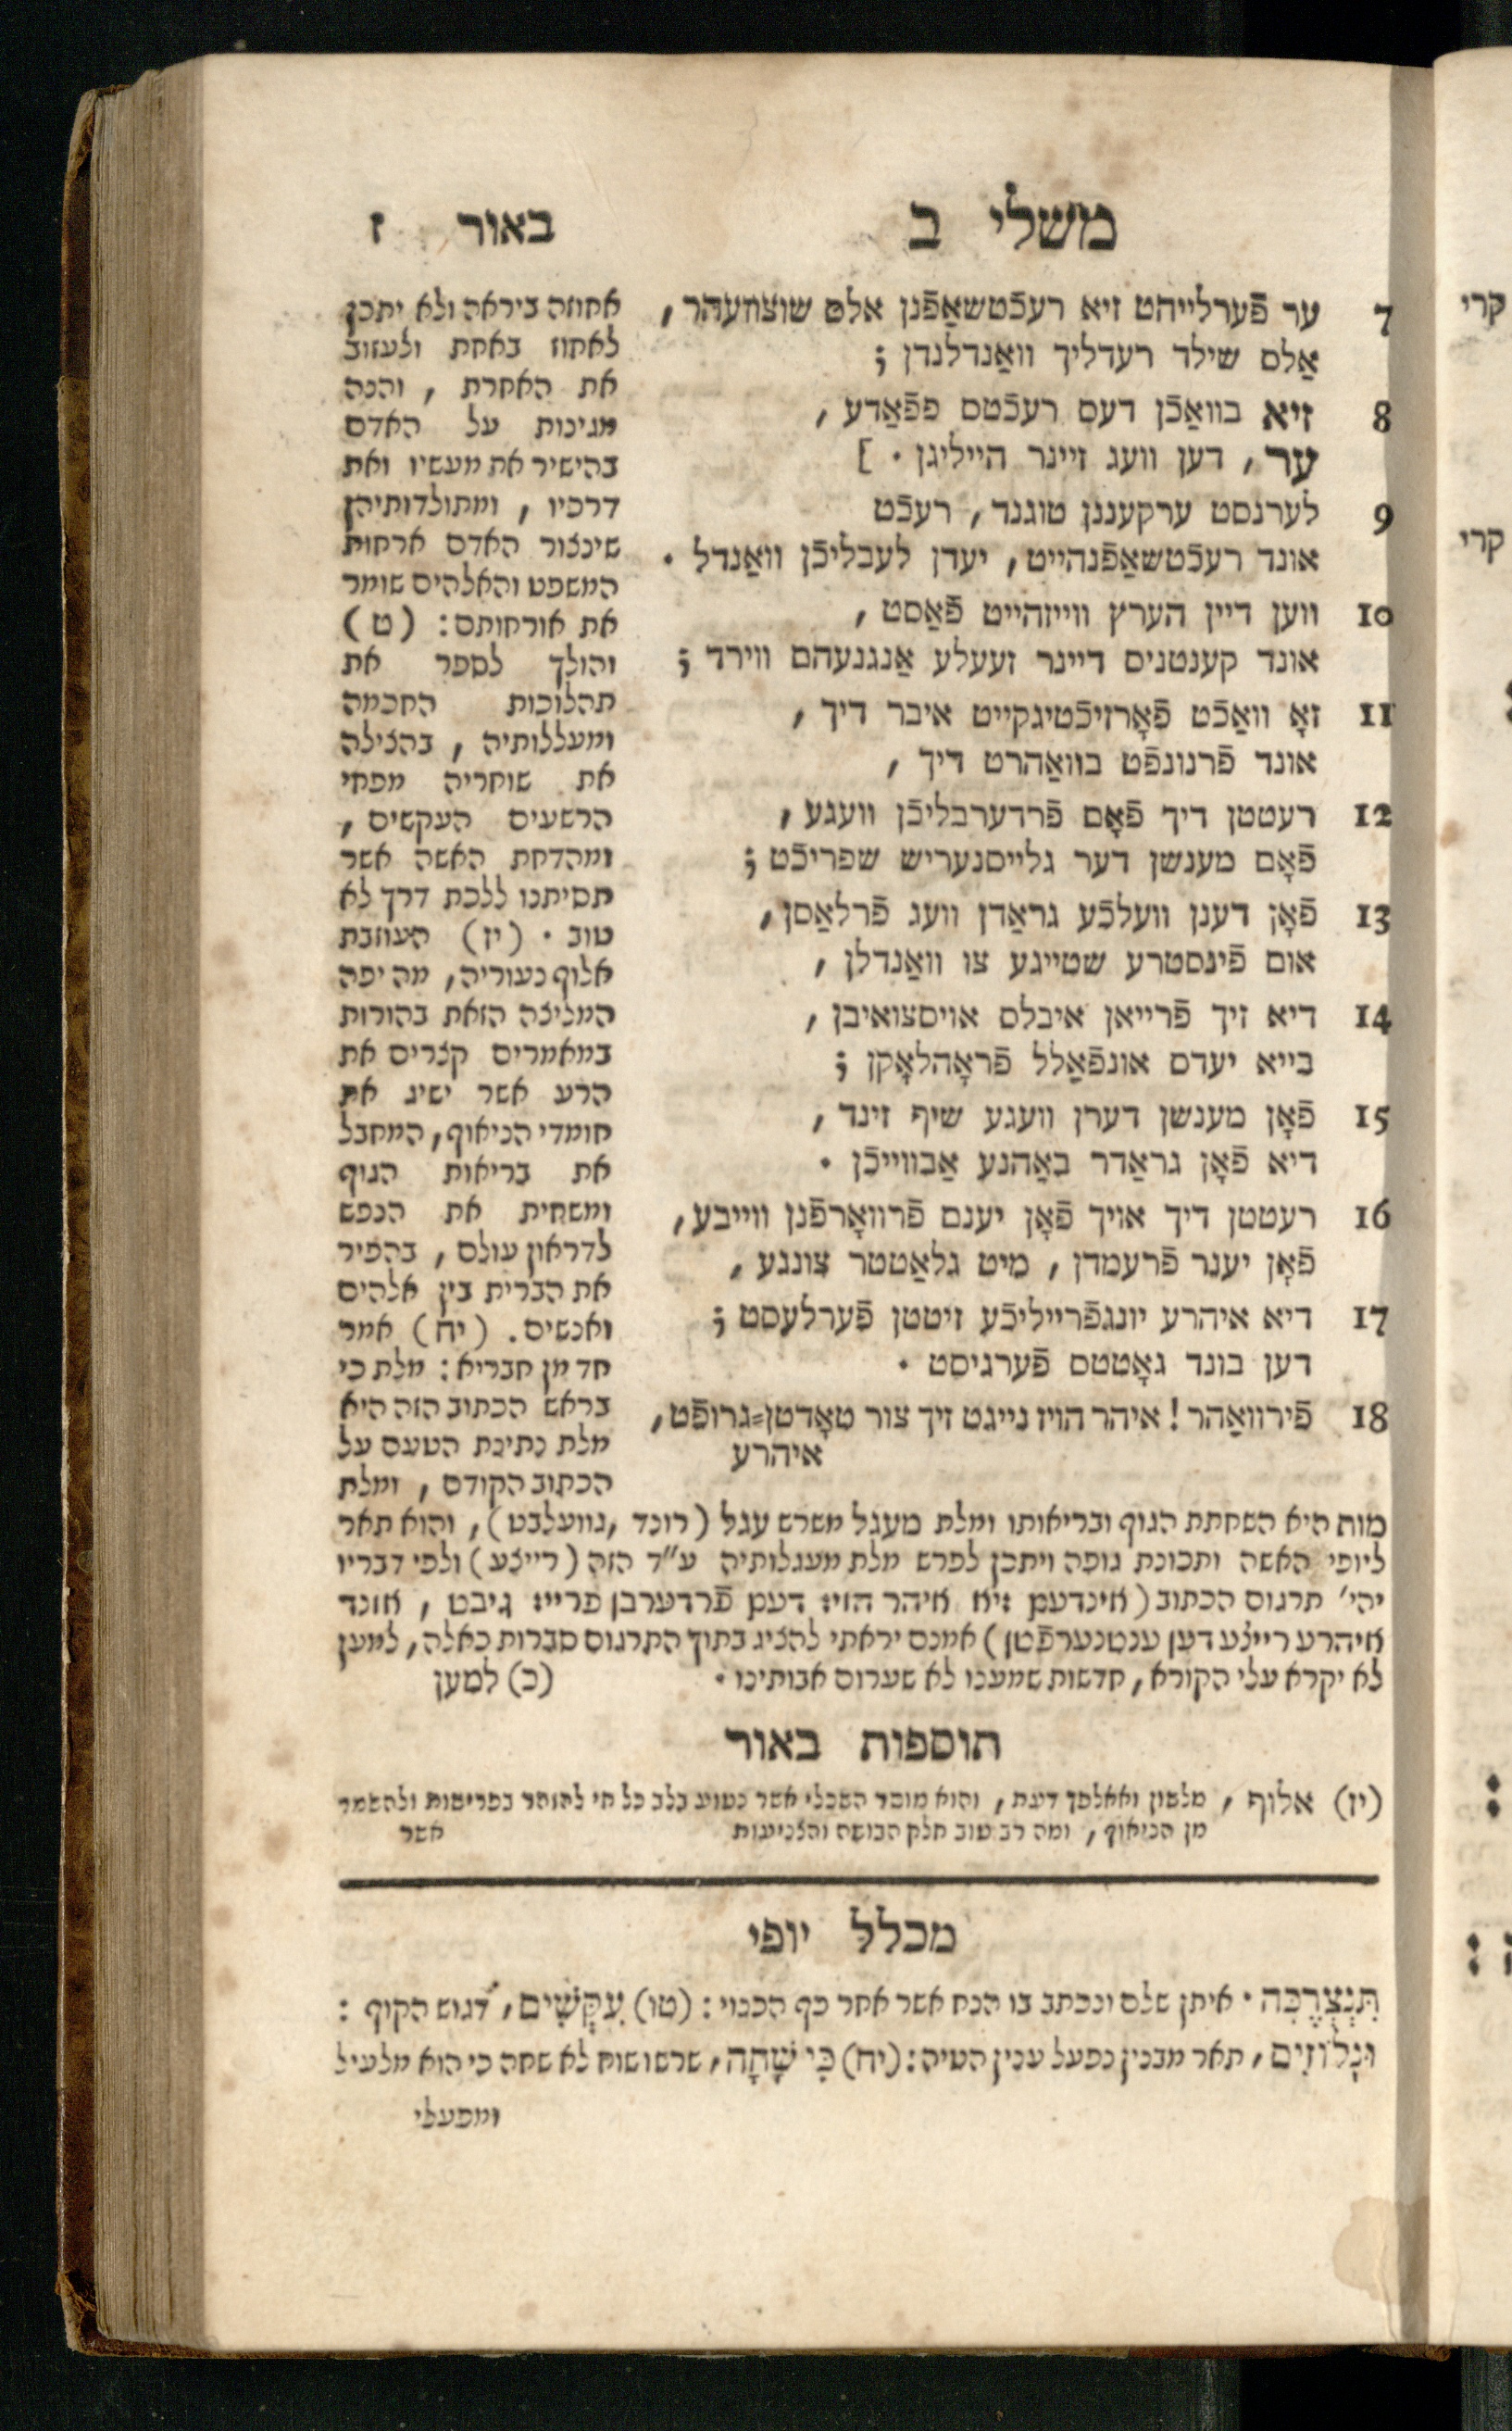 משלי ב
באור ז
7 ער פֿערלייהט זיא רעכֿטשאַפֿנן אלס שוצוועהר,
אַלס שילד רעדליך וואַנדלנדן ;
8 זיא בוואַכֿן דעס רעכֿטס פפֿאַדע ,
ער , דען וועג זיינר הייליגן . ]
9 לערנסט ערקעננן טוגנד, רעכֿט
אונד רעכֿטשאַפֿנהייט, יעדן לעבליכֿן וואַנדל .
10 ווען דיין הערץ ווייזהייט פֿאַסט ,
אונד קענטניס דיינר זעעלע אַנגנעהם ווירד ;
11 זאָ וואַכֿט פֿאָרזיכֿטיגקייט איבר דיך ,
אונד פֿרנונפֿט בוואַהרט דיך ,
12 רעטטן דיך פֿאָם פֿרדערבליכֿן וועגע ,
פֿאָם מענשן דער גלייסנעריש שפריכֿט ;
13 פֿאָן דענן וועלכֿע גראַדן וועג פֿרלאַסן ,
אום פֿינסטרע שטייגע צו וואַנדלן ,
14 דיא זיך פֿרייאן איבלס אויסצואיבן ,
בייא יעדם אונפֿאַלל פֿראָהלאָקן ;
15 פֿאָן מענשן דערן וועגע שיף זינד ,
דיא פֿאָן גראַדר באַהנע אַבווייכֿן .
16 רעטטן דיך אויך פֿאָן יענם פֿרוואָרפֿנן ווייבע ,
פֿאָן יענר פֿרעמדן , מיט גלאַטטר צונגע ,
17 דיא איהרע יונגפֿרייליכֿע זיטטן פֿערלעסט ;
דען בונד גאָטטס פֿערגיסט .
18 פֿירוואַהר ! איהר הויז נייגט זיך צור טאָדטן=גרופֿט ,
איהרע
אחוזה ביראה ולא יתכן
לאחוז באחת ולעזוב
את האחרת , והנה
מגינות על האדם
בהישיר את מעשיו ואת
דרכיו , ומתולדותיהן
שינצור האדם ארחות
המשפט והאלהים שומר
את אורחותם: (ט)
והולך לספר את
תהלוכות החכמה
ומעללותיה , בהצילה
את שוחריה מפחי
הרשעים העקשים ,
ומהדחת האשה אשר
תסיתנו ללכת דרך לא
טוב . (יז) העוזבת
אלוף נעוריה, מה יפה
המליצה הזאת בהורות
במאמרים קצרים את
הרע אשר ישיג את
חומדי הניאוף, המחבל
את בריאות הגוף
ומשחית את הנפש
לדראון עולם , בהפיר
את הברית בין אלהים
ואנשים. (יח) אמר
חד מן חבריא: מלת כי
בראש הכתוב הזה היא
מלת נתינת הטעם על
הכתוב הקודם , ומלת
מות היא השחתת הגוף ובריאותו ומלת מעגל משרש עגל (רונד ,גוועלבט), והוא תאר
ליופי האשה ותכונת גופה ויתכן לפרש מלת מעגלותיה ע״ד הזה (רייצע) ולפי דבריו
יהי׳ תרגום הכתוב (אינדעם זיא איהר הויז דעם פֿרדערבן פרייז גיבט , אונד
איהרע רייצע דען ענטנערפֿטן) אמנם יראתי להציג בתוך התרגום סברות כאלה, למען
לא יקרא עלי הקורא, חדשות שמענו לא שערום אבותינו . (כ) למען
תוספות באור
(יז) אלוף , מלשון ואאלפך דעת, והוא מוסד השכלי אשר נטוע בלב כל חי להזהר בפרישות ולהשמר
מן הניאוף, ומה רב טוב חלק הבושה והצניעות אשר
מכלל יופי
תִּנְצְרֶכָּה . איתן שלם ונכתב בו הנח אשר אחר כף הכנוי : (טו) עִקְּשִׁים, דגוש הקוף :
וּנְלוֹזִים, תאר מבנין נפעל ענין הטיה: (יח) כִּי שָׁחָה, שרשו שוח לא שחה כי הוא מלעיל
ומפעלי
קרי
קרי